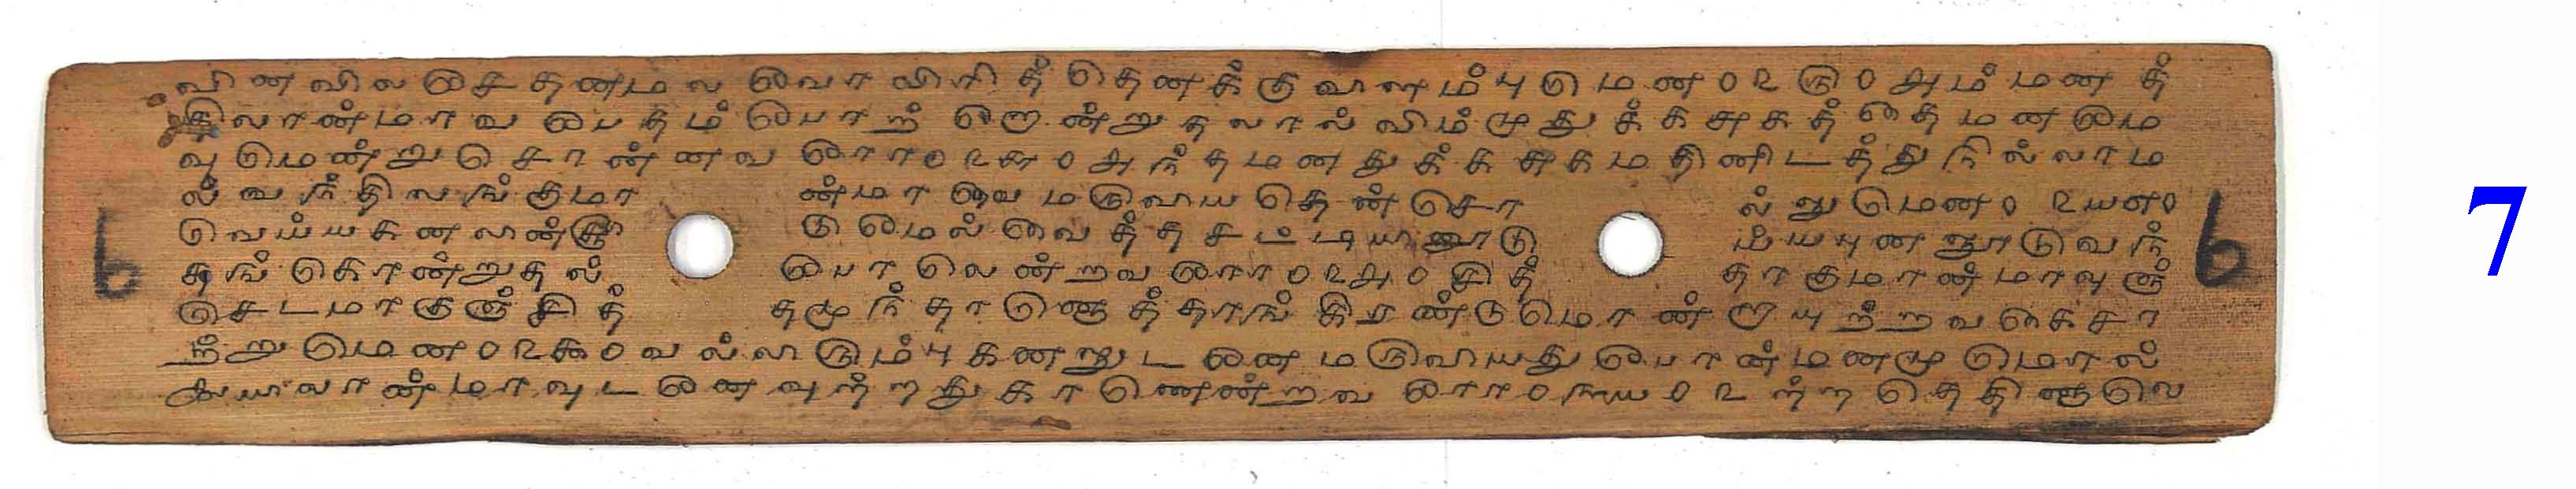 வினவிலசெதனமல வொவிரித் தெனக்குவாளம்புமென ௦ ௨ரு ௦ அம்மனத்
திலாண்மாவ பெதம் பொற் றொன்றுதலால் விம்முதுக்கசுகத்தைமனமெ
வுமென்றுசொன்னவரொ ௦ ௨சு ௦ அந்தமனதுக்கசுகமதினிடத்துநில்லாம
ல் வந்திலங்குமா ன்மாவெமருவியதென்சொ ல்றுமென ௦ ௨யஎ ௦
வெய்யகனலான்சூ டுமெல்வைத்தசட்டியாலூடு ய்யபுனறூடுவந்
தங்கொன்றுதல் பொலென்றவரொ ௦ ௨அ ௦ சித் தாகுமான்மாவுஞ்
செடமாகுஞ்சித் தமுந்தானெத்தாங்கிரண்டுமொன்றாயுற்றவகைசொ
ற்றுமென ௦ ௨௯ ௦ வல்லரும்புகனறுடனெமருவியதுபொன்மனமுமொல்
அயலான்மாவுடனெவுற்றதுகாணென்றவரொ ௦ ௩ய ௦ உற்றதெதினாலெ
6
6
7